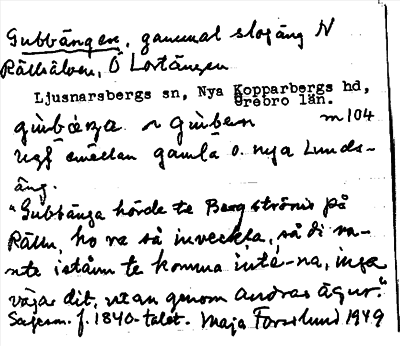 Gubbängen, gammal slogäng N
Rällsälven, Ö Lortängen
Ljusnarsbergs sn, Nya Kopparbergs hd,
Örebro län.
m 104
ngt emellan gamla o. nya Lunds-
äng.
"Gubbänga hörde te Bergströms på
Rälln, ho va så inveckla, så di va-
nte istånn te komma inte-na, inga
vägar dit, utan genom andras ägur."
Sagesm. f. 1840-talet. Maja Forsslund 1949